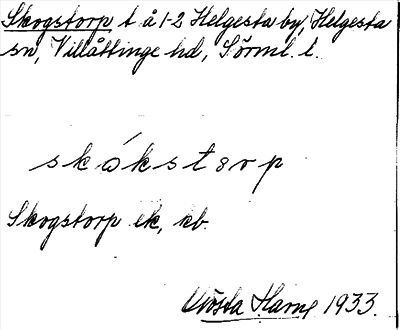 Skogstorp t å 1-2 Helgesta by, Helgesta
sn, Villåttinge hd, Sörml. l.
skókstorp
Skogstorp ek, kb.
Gösta Harne 1933.